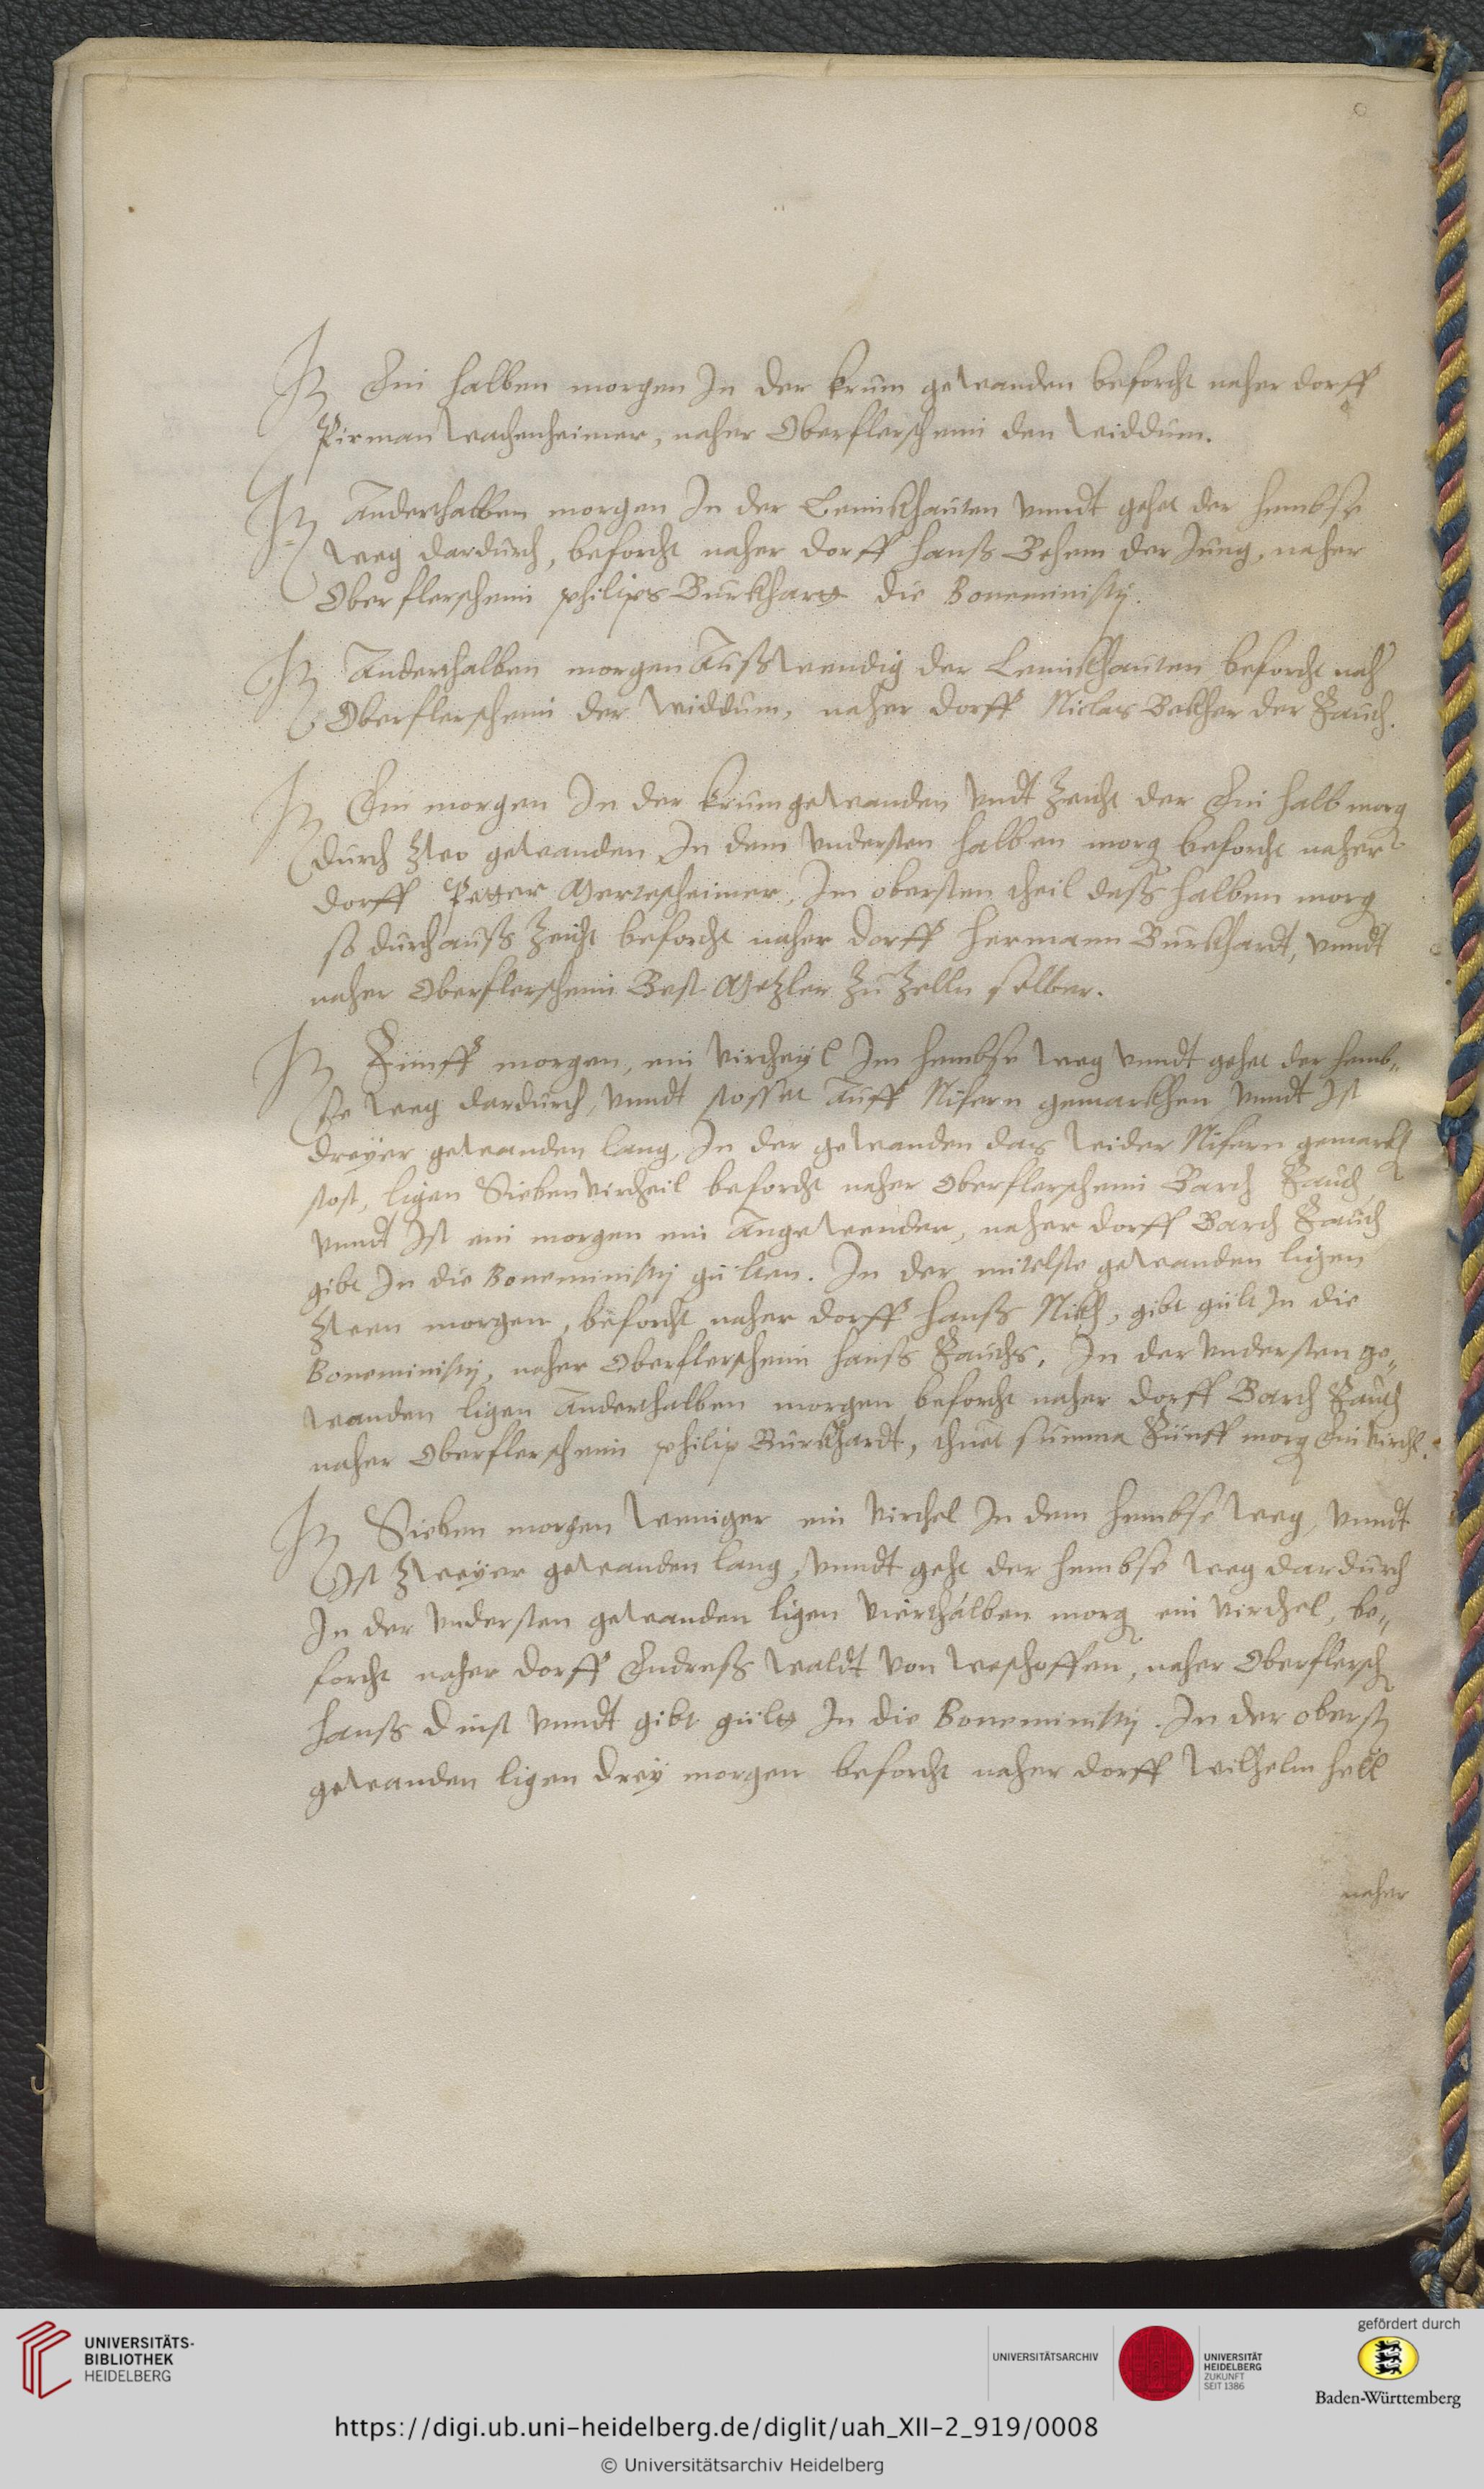 It Ein halben morgen In der krum gewanden beforcht naher dorff
Pirman Wachenheimer, naher Oberflersheim den Widdum.
It Anderthalben morgen In der Leimkhauten vnndt gehet der hembse
weg dardurch, beforcht naher dorff hanß Behem der Jung, naher
Oberflersheim philips Burkhart die
It Anderthalben morgen Außwendig der Leimkhauten beforcht nah
Oberflersheim der Widdum, naher dorff Niclas Bekher der Fauch.
It Ein morgen In der krumgewanden vndt Zeicht der Ein halb morg
durch zwo gewanden In dem vndersten halben morg beforcht naher
dorff Petter Mertesheimer, Im obersten theil deß halben morg
so durchauß Zeicht beforcht naher dorff Hermann Burkhardt, vnndt
naher Oberflersheim Best Metzler Zu Zelln selber.
It Fünff morgen, ein virtheyl Im hembse weg vnndt gehet der hemb„
se weg dardurch, vnndt stosset Auff Nifern gemarkhen vnndt Ist
dreyer gewanden lang, In der gewanden das wider Nifern gemarkh
stost, ligen Sieben virtheil beforcht naher Oberflersheim Barth Fauch
vnndt Ist ein morgen ein Angewender, naher dorff Barth Fauch
gibt In die gülten. In der mitelste gewanden ligen
Zween morgen, beforcht naher dorff hanß Nikh, gibt gült In die
naher Oberflersheim hanß Fauchs, In der vndersten ge„
wanden ligen Anderthalben morgen beforcht naher dorff Barth Fauch
naher Oberflersheim philip Burkhardt, thuet summa Fünff morg Ein virthl.
It Sieben morgen weniger ein virthel In dem hembse weg, vnndt
Ist Zweyer gewanden lang, vnndt geht der hembse weg dardurch
In der vndersten gewanden ligen vierthalben morg ein virthel, be„
forcht naher dorff Endreß Waldt von Weshoffen, naher Oberflersh
hanß Dinst vnndt gibt gült In die In der oberst
gewanden ligen drey morgen beforcht naher dorff Wilhelm hell
naher
UNIVERSITÄTS-
BIBLIOTHEK
HEIDELBERG
UNIVERSITÄTSARCHIV
UNIVERSITÄT
HEIDELBERG
ZUKUNFT
SEIT 1386
gefördert durch
Baden-Württemberg
https://digi.ub.uni-heidelberg.de/diglit/uah_XII-2_919/0008
© Universitätsarchiv Heidelberg